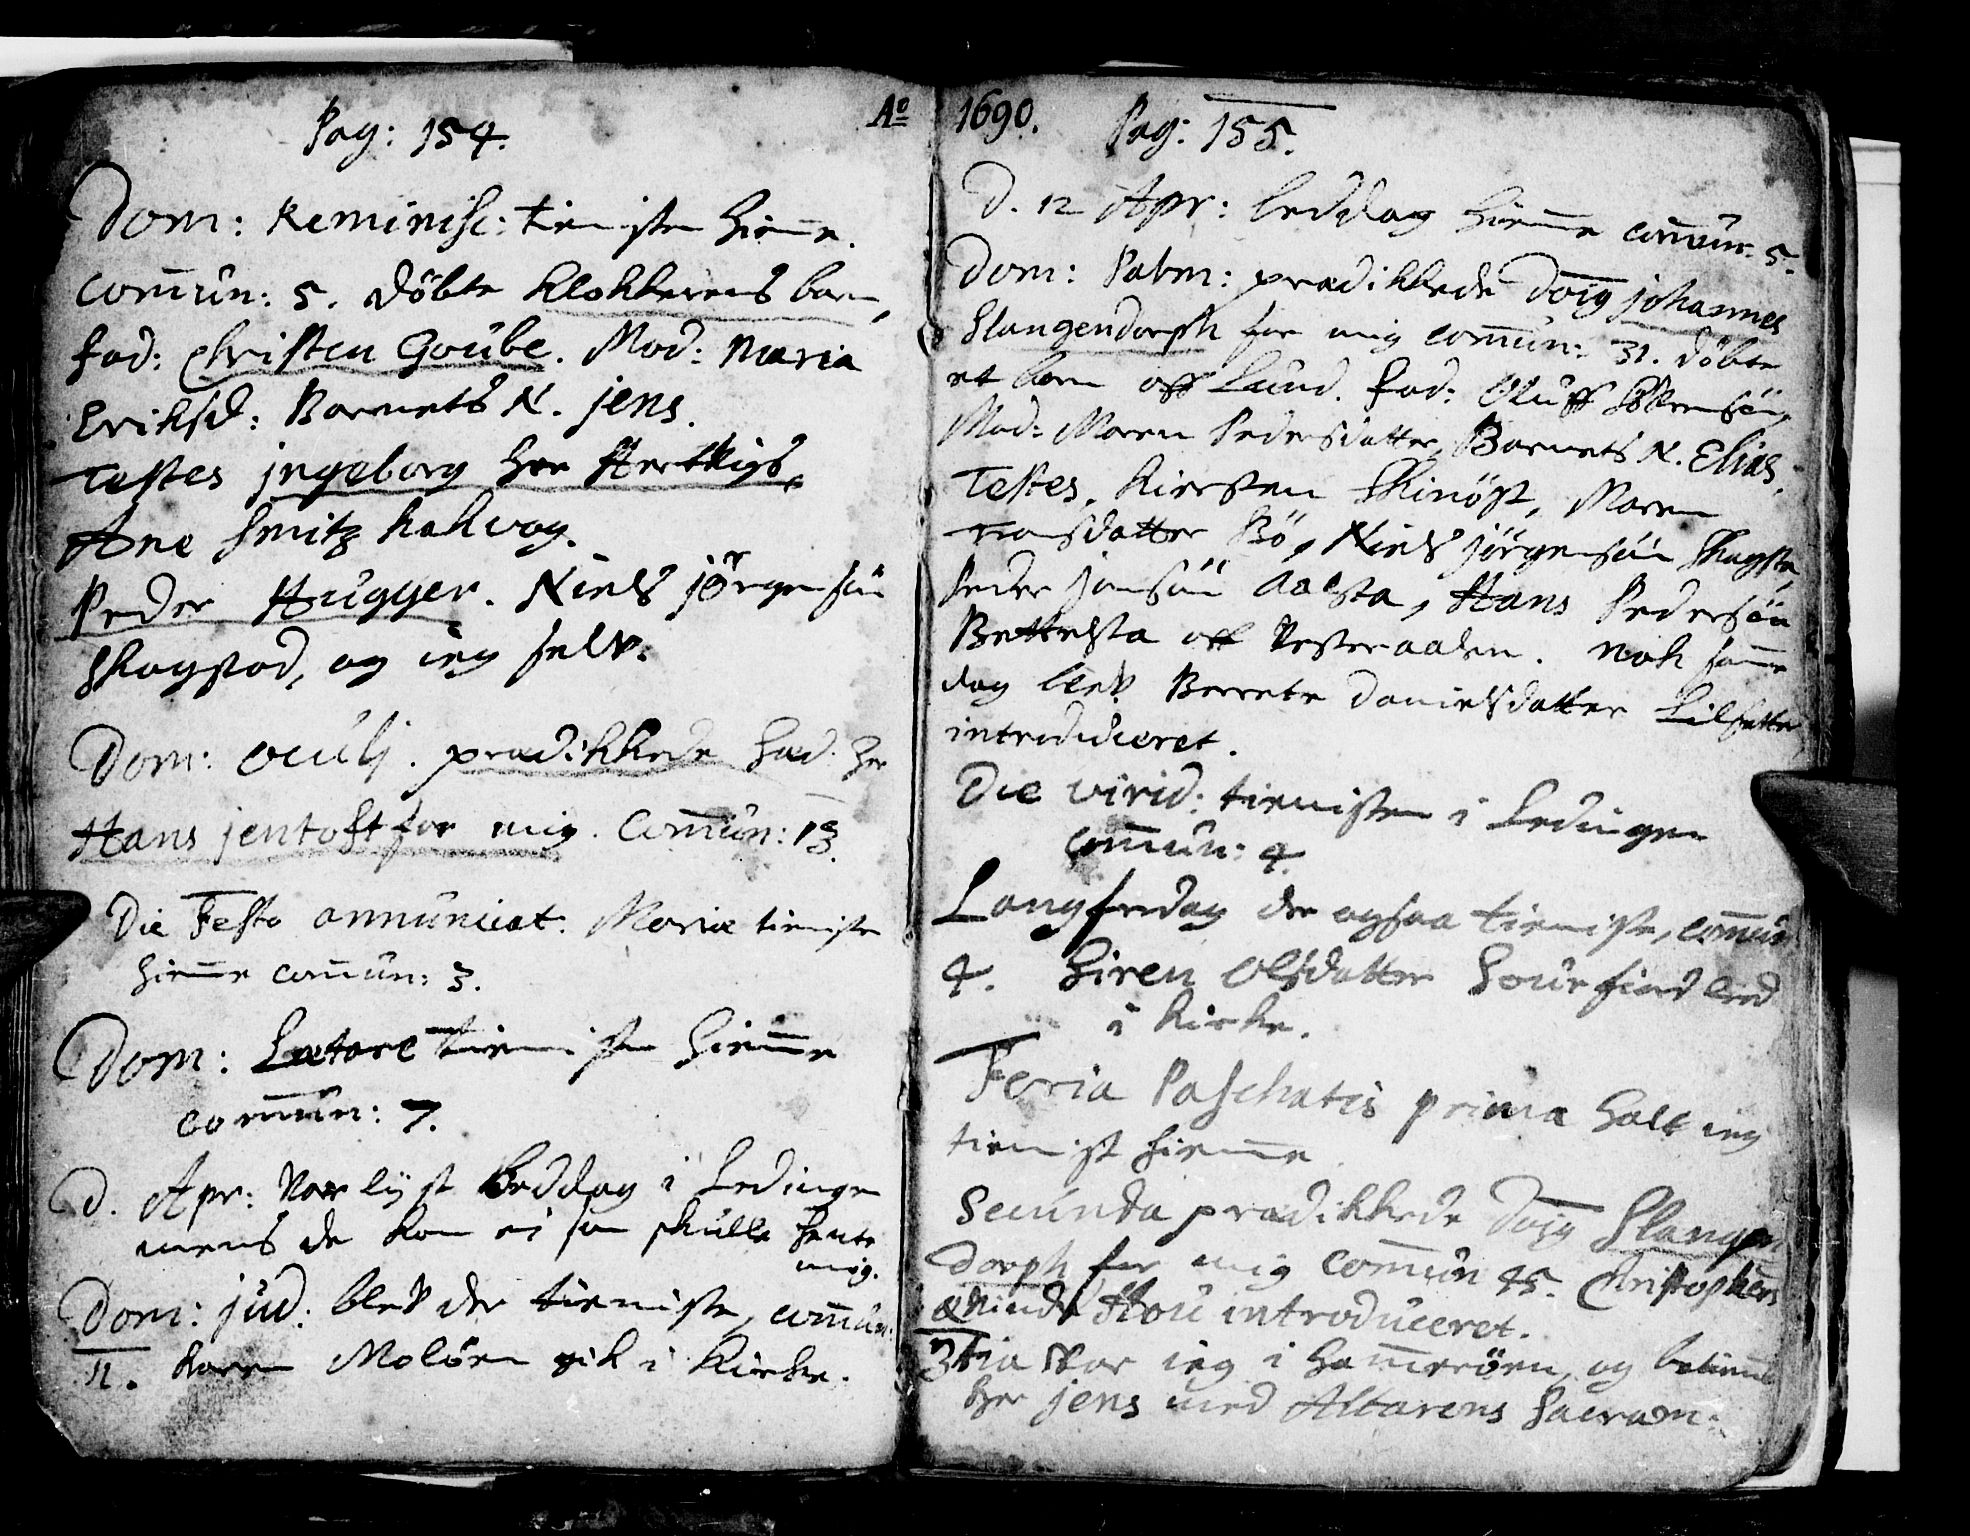 Pag: 154.
Dom: Reminisc: tienisten hiem̅e.
Com̅un: 5. döbte Klokkerens barn,
fad: Christen Goube. Mod: Maria
Eriksd: Barnets N. jens.
Testes jngeborg her Hertvigs,
Ane Smitz kahvog.
Peder Hugger. Niels jörgensön
Skagstad, og ieg self.
Dom: Oculj. prædikkede had: her
Hans jentoft for mig. Com̅un: 13.
Die Festo annunciat. Mariæ tieniste
hiem̅e com̅un: 3.
Dom: Lætare tienisten hiem̅e
com̅un: 7.
D. Apr: var lyst beddag i Ledingen
mens de kom ei som skulle hente
mig.
Dom: jud: blef der tieniste, com̅un:
11. Karen Molöen gik i Kirke.
Aº 1690. Pag: 155.
D. 12 Apr: beddag hiem̅e com̅un: 5.
Dom: Palm: prædikkede Doig johannes
Slangendorph for mig com̅un: 31. döbte
et barn off Lund. fad: Oluff
Mod: Maren Pedersdatter, Barnets N. Elias,
Testes, Kiersten Skinöst, Maren
Tronsdatter Bö, Niels jörgensön Skagsta,
Peder jonsön Aalsta, Hans Pedersön
off Vesteraalen. nok sam̅e
dag blef Berrete Danielsdatter
introduceret.
Die virid: tienisten i Ledingen
com̅un: 4.
Langfredag der ogsaa tieniste, com̅un
4. Siren Olsdatter leed
i Kirke.
Feria Paschatis prima holt ieg
tienist hiem̅e
Secunda prædikkede Doig Slangen
dorph for mig com̅un 45. Christophers
qvinde Hou introduceret.
3tia var ieg i Ham̅eröen, og betiente
her jens med Altarens Sacram: